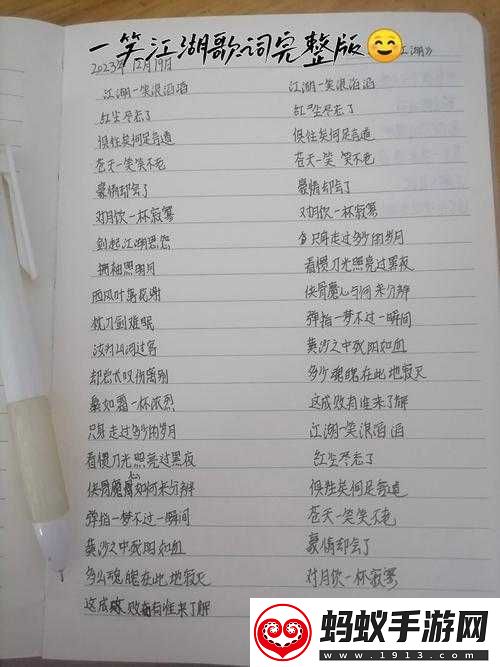 一笑江湖歌词完整版
江湖》
2023年12月19日
江湖一笑浪滔滔
红尘尽忘了
俱往矣何足言道
苍天一笑笑不老
豪情却会了
对月饮一杯寂寥
剑起江湖恩怨
拂袖照明月
西风叶落花谢
枕刀剑难眠
汝为山河过客
却总长叹伤离别
鬓如霜一杯浓烈
只身走过多少的岁月
看惯刀光照亮过黑夜
侠骨魔心如何来分辨
弹指一梦不过一瞬间
黄沙之中残阳如血
多少魂魄在此地寂灭
这成败有谁来了解
江湖一笑浪滔滔
红尘尽忘了
俱往矣何足言道
苍天一笑 笑不老
豪情却会了
对月饮一杯寂寥
只身走过多少的岁月
看惯刀光照亮过黑夜
侠骨魔心与何来分辨
弹指一梦不过一瞬间
黄沙之中残阳如血
多少魂魄在此地寂灭
这成败有谁来了解
江湖一笑浪滔滔
红尘尽忘了
俱往矣何足言道
苍天一笑笑不老
豪情却会了
对月饮一杯寂寥
蚂蚁手游网
www.1913.com